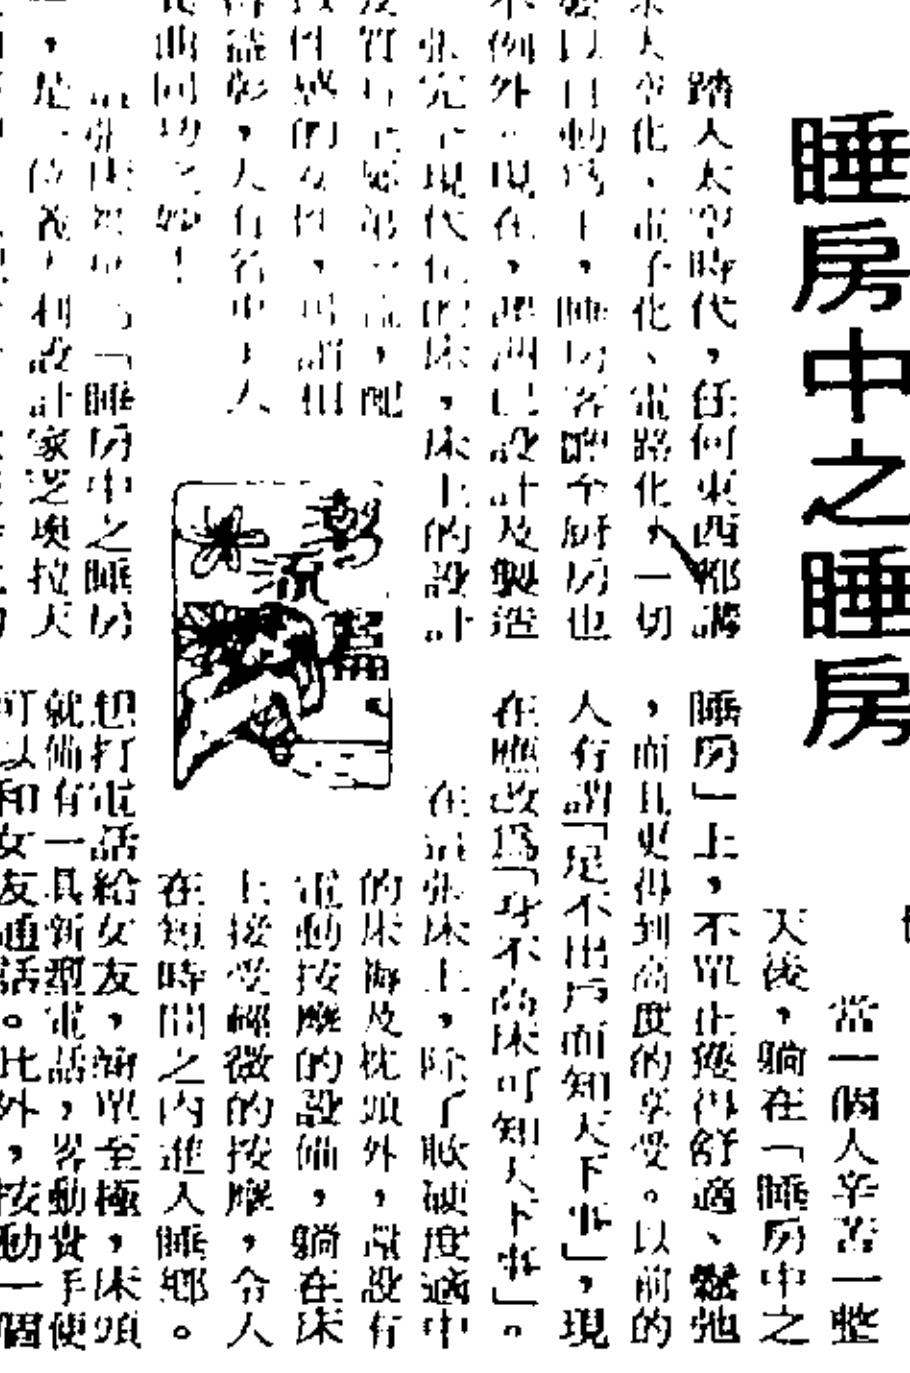 睡房中之睡房
踏入太空時代，任何東西都講
求太空化、電子化、電路化，一切
要以自動為主，睡房客廳至厨房也
不例外。現在，歐洲已設計及製造
張完全現代化的床，床上的設計
及質，配
以性感的女性，可謂相
得益彰，人有名車人
曲同功之妙！
「睡房中之睡房
，是一位義大利設計家芝奧拉天
潮流篇
當一個人辛苦一整
天後，躺在「睡房中之
睡房」上，不單止獲得舒適、鬆弛
，而且更得到高度的享受。以前的
人有謂「足不出戶而知天下事」，現
在應改爲「身不離床可知天下事」。
在這張床上，除了軟硬度適中
的床褥及枕頭外，還設有
電動按摩的設備，躺在床
上接受輕微的按摩，令人
在短時間之內進入睡鄉。
想打電話給女友，簡單至極，床頭
就備有一具新型電話，畧動貴手便
可以和女友通話。此外，按動一個